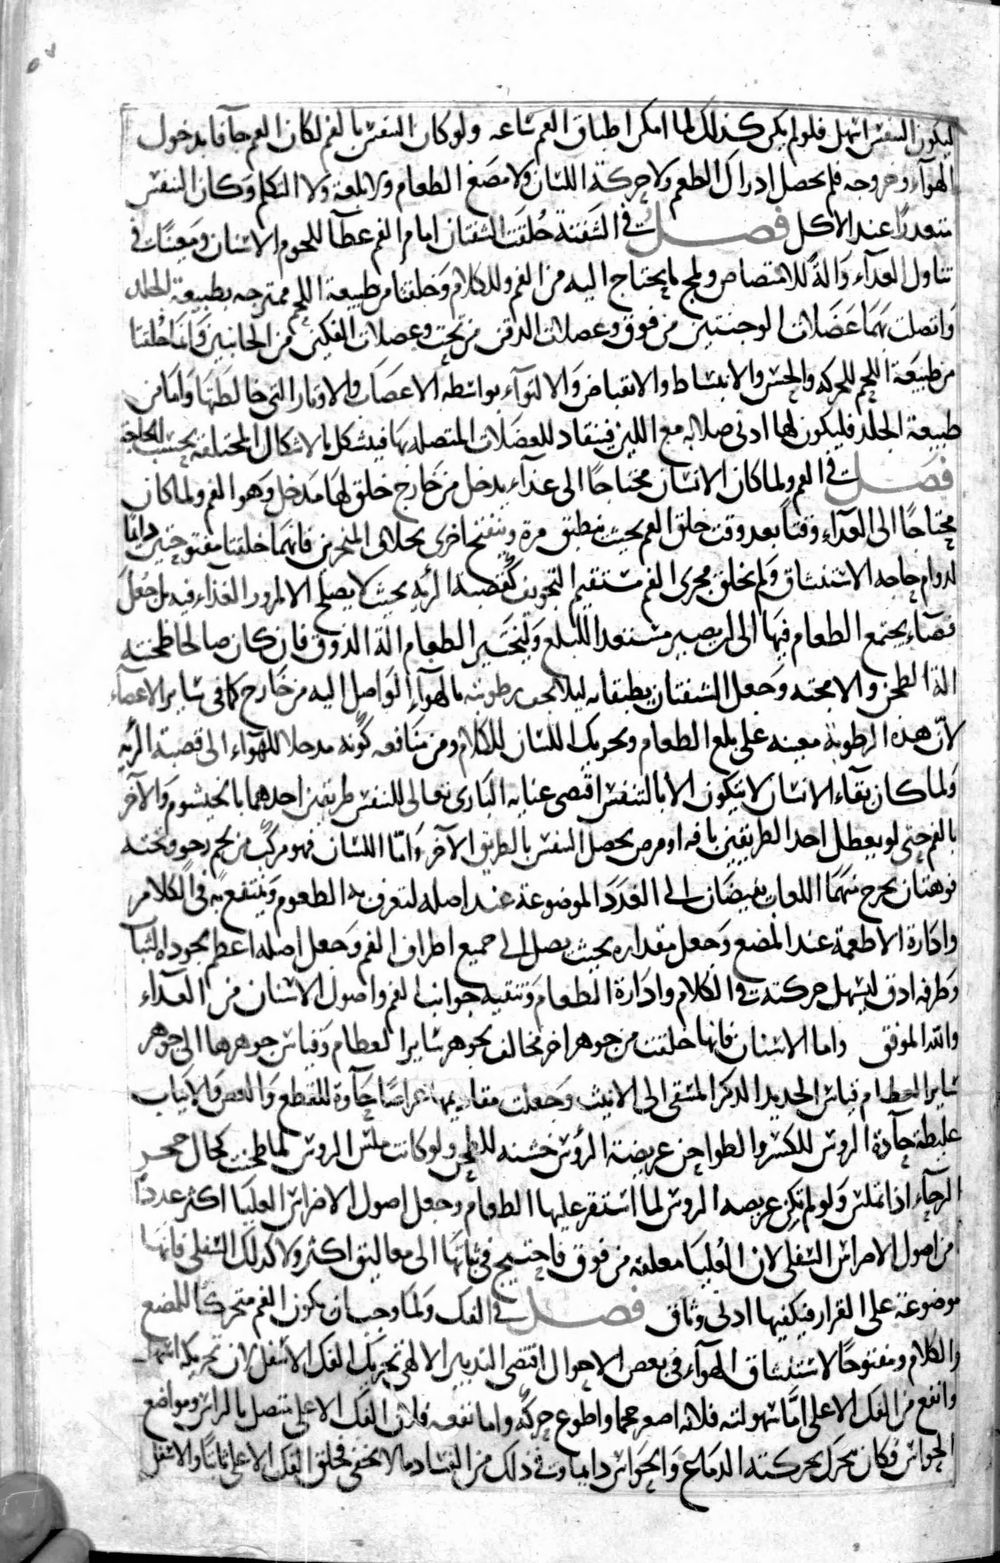 ليكون النفس اسهل فلو لم يكن كذلك لما امكن اطباق الفم ساعة ولو كان النفس بالفم لكان الفم جافا بدخول
الهوآء وخروجه فلم يحصل ادراك الطعم ولا حركة اللسان ولا مضغ الطعام ولا بلعه ولا التكلم وكان النفس
متعذرا عند الاكل فصل في الشفة خلقت الشفتان امام الفم غطآ للحوم الاسنان ومعينات في
تناول الغدآء وآلة للامتصاص ولمج ما يحتاج اليه من الفم وللكلام وخلقتا من طبيعة اللحم ممتزجه بطبيعة الجلد
واتصلت بهما عضلات الوجنتين من فوق وعضلات الدقن من تحت وعضلات الفكين من الجانبين وانما خلقتا
من طبيعة اللحم للحركه والحس والانبساط والانقباض والالتوآء بواسطه الاعصاب والاوتار التي خالطتها واما من
طبيعة الجلد فليكون لها ادنى صلابه مع اللين فينقاد للعضلات المتصله بها فيتشكل بالاشكال المختلفة بحسب الحاجة
فصل في الفم ولما كان الانسان محتاجا الى غدآء يدخل من خارج خلق لها مدخل وهو الفم ولما كان
محتاجا الى الغدآء وقتا بعد وقت خلق الفم بحيث ينطبق مرة وينفتح اخرى بخلاف المنخرين فانهما خلقتا مفتوحتين دائما
لدوام حاجه الاستنشاق ولم يخلق مجرى الفم مستقيم التجويف كقصبة الرئه بحيث لا يصلح الا لمرور الغذاء فيه بل جعل
فضآء يجتمع الطعام فيها الى ان يصير مستعدا للبلع وليختبر الطعام آلة الذوق فان كان صالحا طحنته
آلة الطحن والا مجته وجعل الشفتان يطبقانه ليلا تجف رطوبته بالهوآء الواصل اليه من خارج كما في سائر الاعضآء
لان هذه الرطوبة معينه على بلع الطعام وتحريك اللسان للكلام ومن منافعه كونه مدخلا للهوآء الى قصبة الرئه
ولما كان بقآء الانسان لا يكون الا بالتنفس اقتضى عناية الباري تعالى للنفس طريقين احدهما بالخيشوم والآخر
بالفم حتى لو تعطل احد الطريقين بافه او مرض يحصل النفس بالطريق الآخر واما اللسان فهو مركب من لحم رخو وتحته
فوهتان يخرج منهما اللعاب يفيضان الى الغدد الموضوعة عند اصله لتعرف به الطعوم وينتفع به في الكلام
وادارة الاطعمة عند المضغ وجعل مقداره بحيث يصل الى جميع اطراف الفم وجعل اصله اعظم لجودة الثبا
وطرفه ادق ليسهل حركته في الكلام وادارة الطعام وتنقيه جوانب الفم واصول الاسنان من الغدآء
والله الموفق واما الاسنان فانها خلقت من جوهر اخر مخالف لجوهر سائر العظام وقياس جوهرها الى جوهر
سائر العظام قياس الحديد الذكر المسقى الى الانيث وجعلت مقاديمها عراضا حآدة للقطع والعض والانياب
غليظة حآدة الروس للكسر والطواحن عريضة الرؤس خشنه للطحن ولو كانت ملس الروس لما طحنت كحال حجر
الرحآء اذا تملس ولو لم تكن عريضه الروس لما استقر عليها الطعام وجعل اصول الاضراس العليا اكثر عددا
من اصول الاضراس السفلى لان العليا معلقه من فوق فاحتيج في ثباتها الى معاليق اكثر ولا كذلك السفلى فانها
موضوعة على القرار فيكفيها ادنى وثاق فصل في الفك ولما وجب ان يكون الفم متحركا للمضع
والكلام ومفتوحا لاستنشاق الهوآء في بعض الاحوال اقتضى التدبير الالهي تحريك الفك الاسفل لان تحريكه اسهل
وانفع من الفك الاعلى اما سهولته فلانه اصغر حجما واطوع حركة واما نفعه فلان الفك الاعلى متصل بالراس ومواضع
الحواس فكان يتحرك بحركته الدماغ والحواس دايما وفي ذلك من الفساد ما لا يخفى فخلق الفك الاعلى ثابتا والاسفل